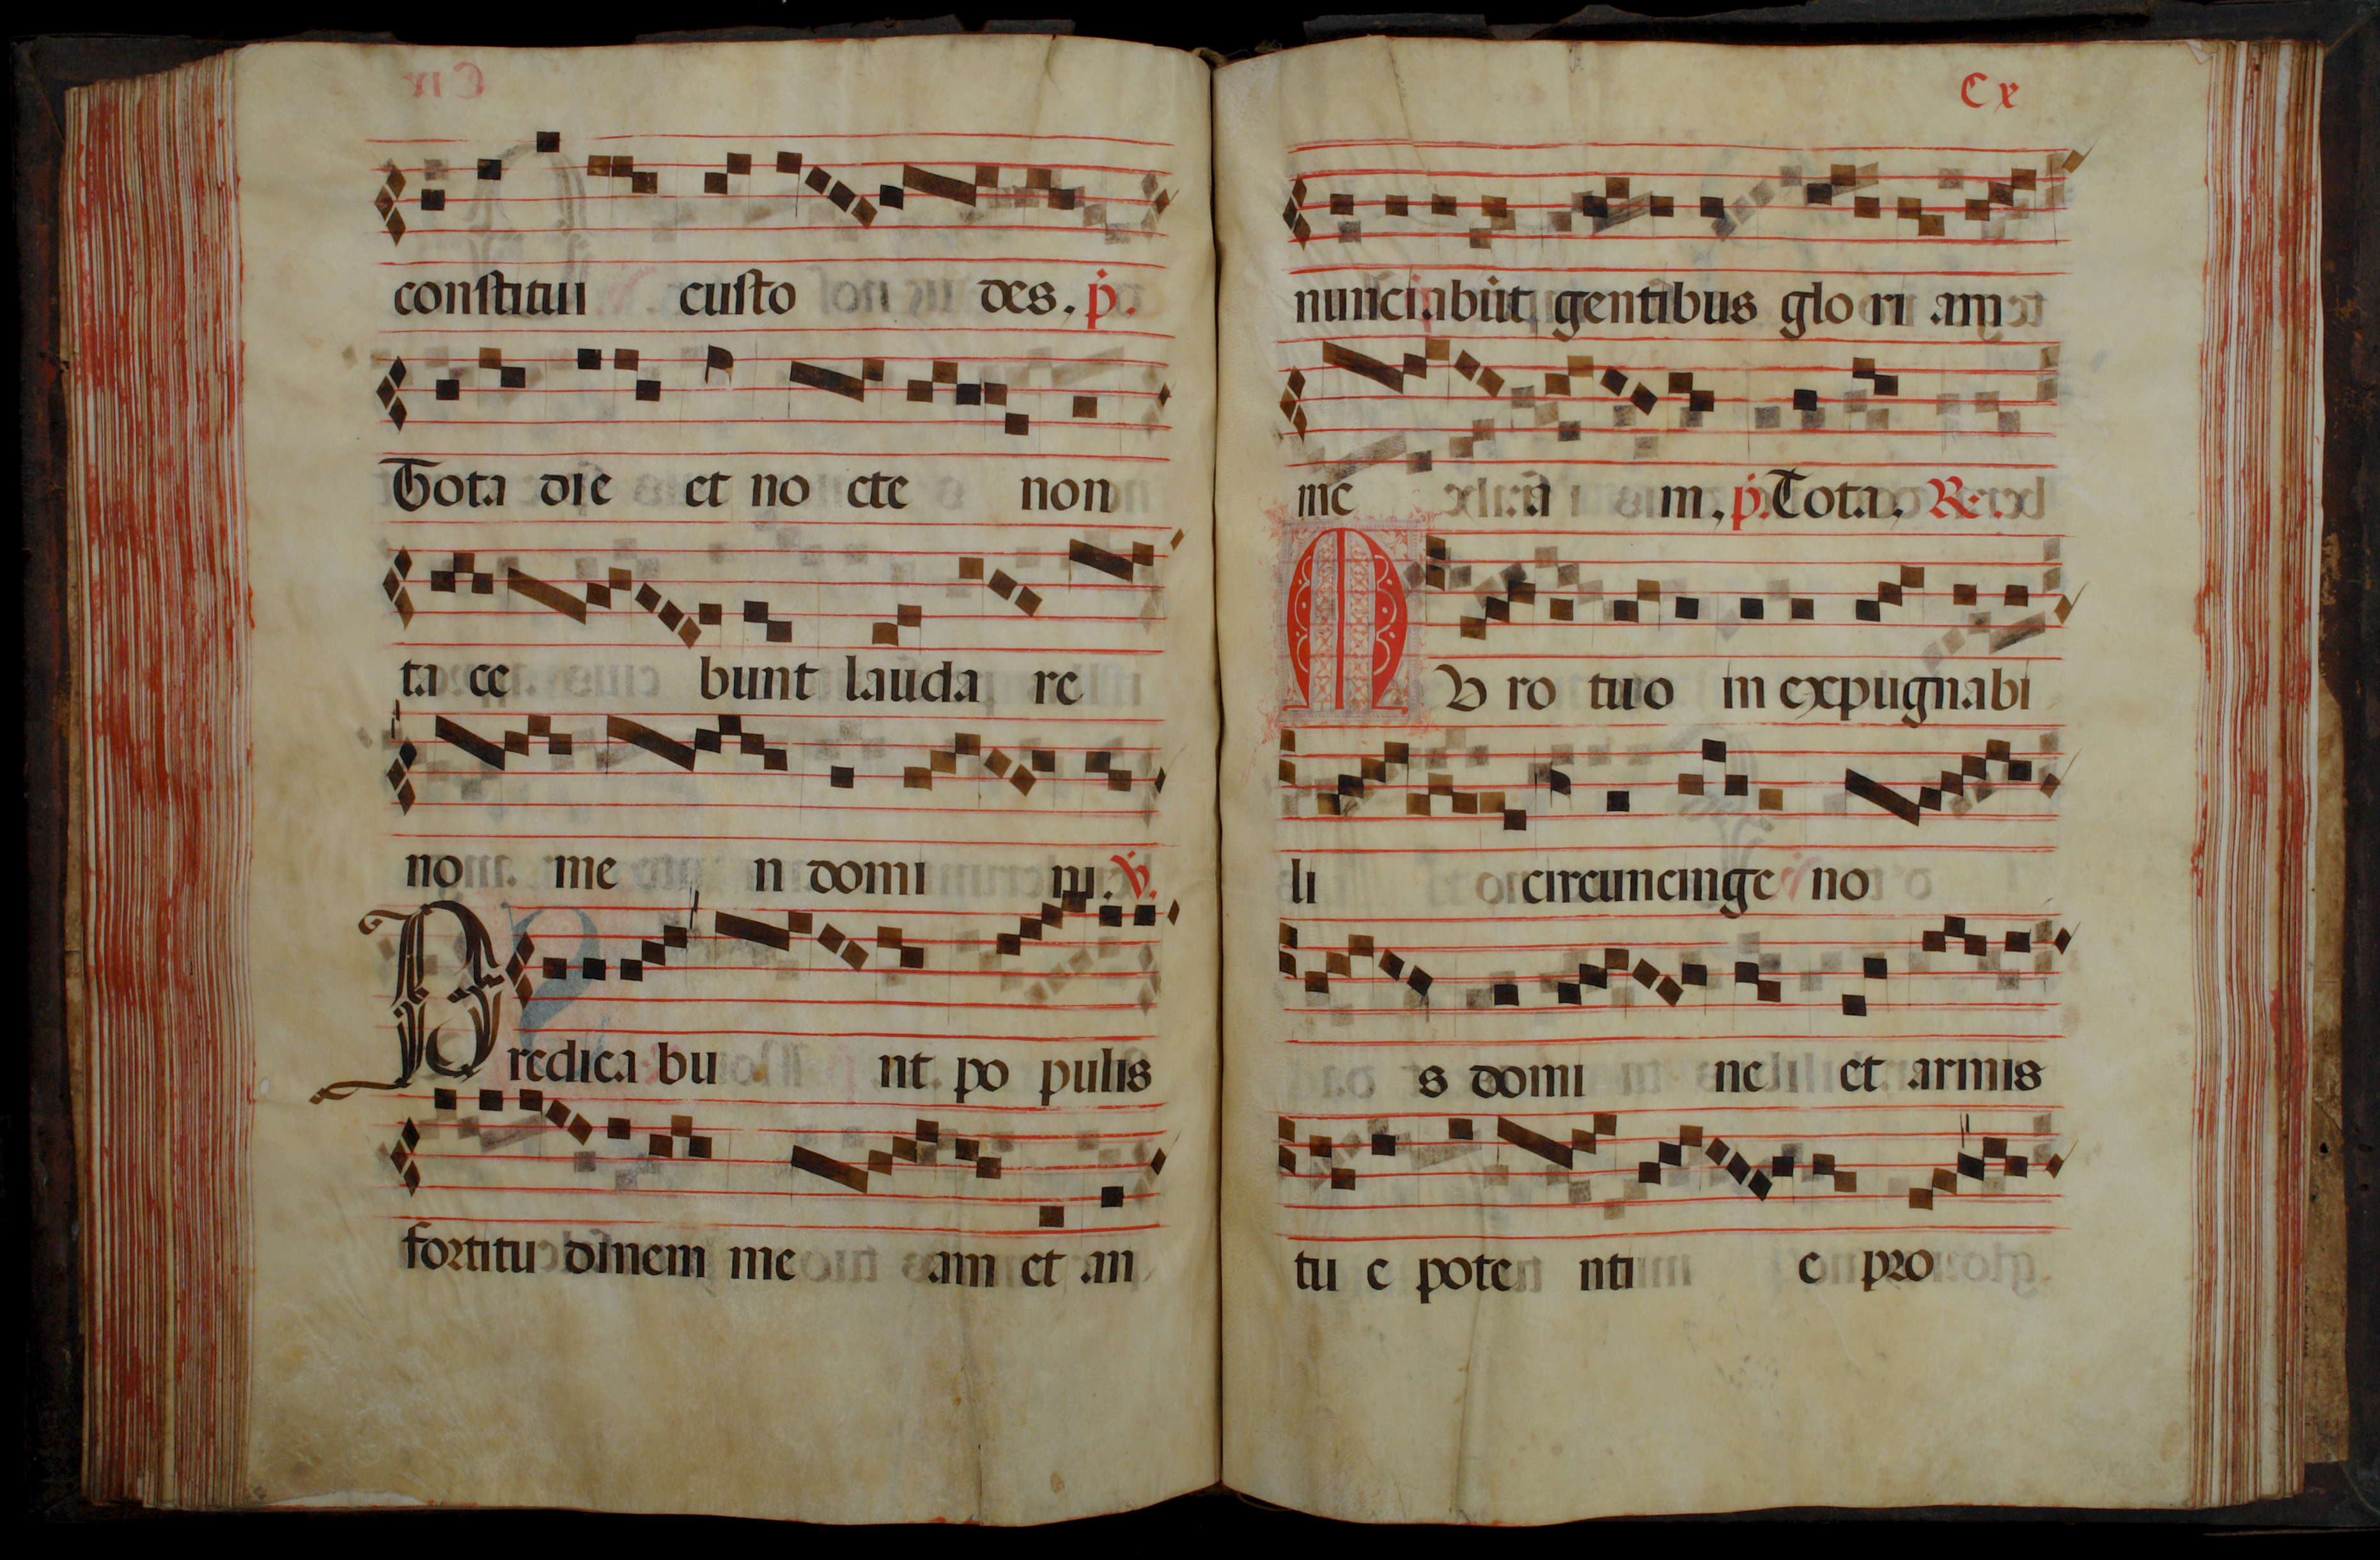 constitui custo des. p.
Tota die et no cte non
ta ce bunt lauda re
no me n domi ni. V.
Predica bu nt po pulis
fortitu dinem me am et an
Cx
nunciabūt gentibus glo ri am
me a m. p. Tota. Re.
MV ro tuo in expugnabi
li circuncinge no
s domi ne et armis
tu e pote nti e pro